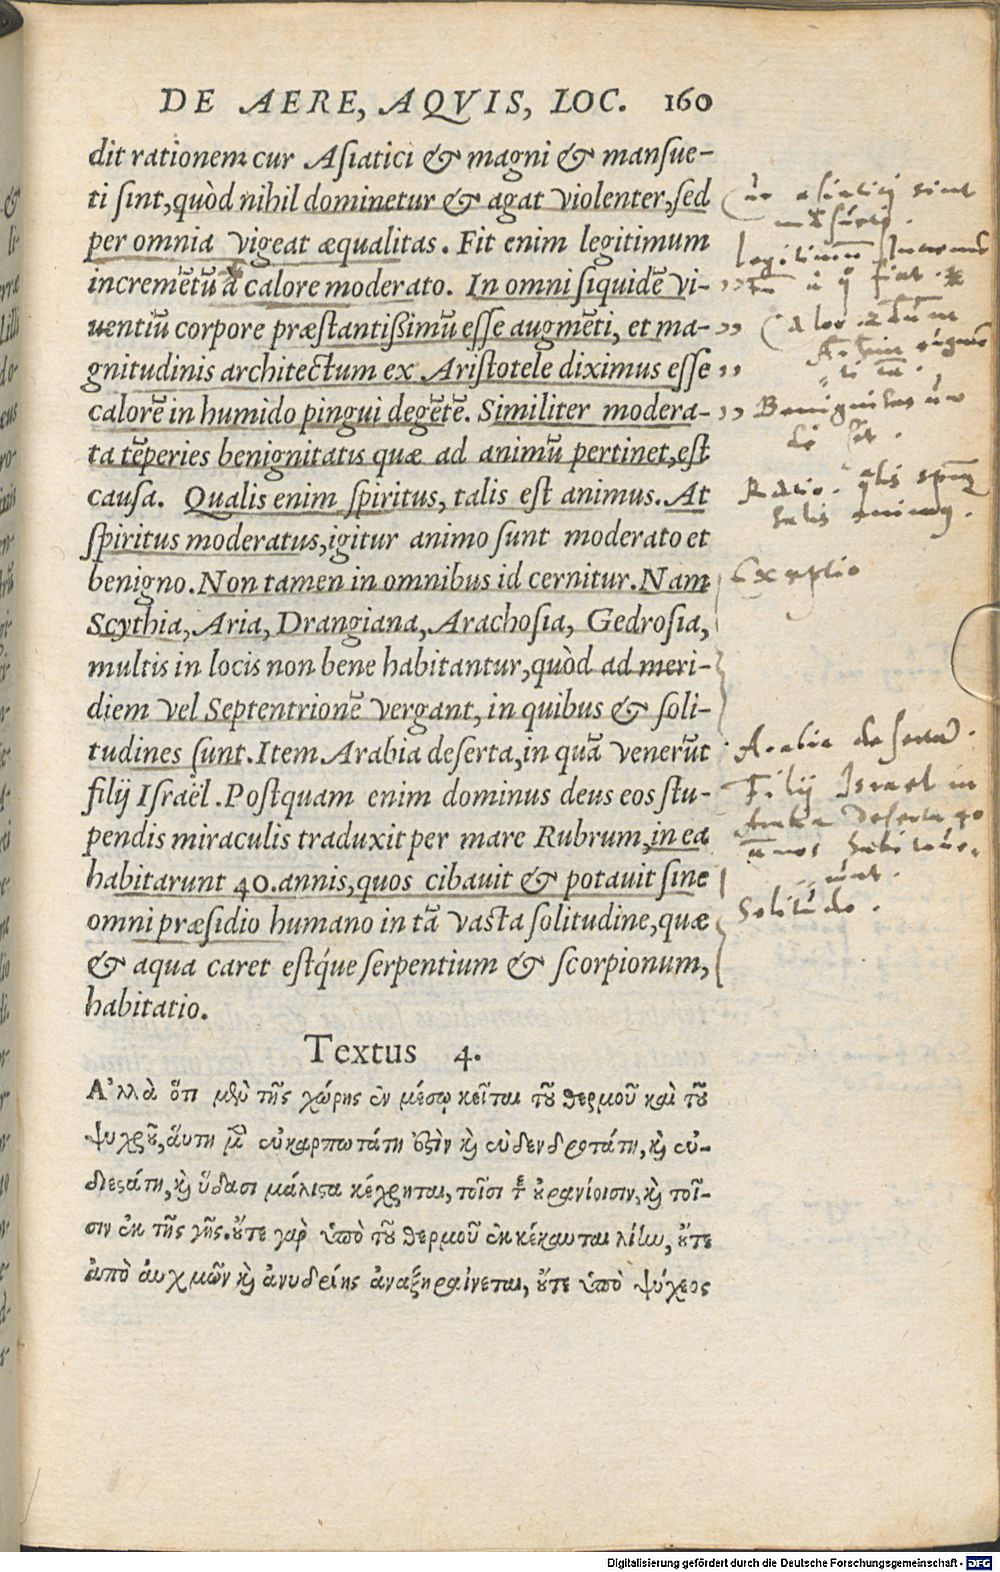 DE AERE, AQVIS, LOC. 160
dit rationem cur Asiatici & magni & mansue-
ti sint, quòd nihil dominetur & agat violenter, sed
per omnia vigeat æqualitas. Fit enim legitimum
incremẽtũ à calore moderato. In omni siquidẽ vi-
uentiũ corpore præstantißimũ esse augmẽti, et ma-
gnitudinis architectum ex Aristotele diximus esse
calorẽ in humido pingui degẽtẽ. Similiter modera-
ta tẽperies benignitatis quæ ad animũ pertinet, est
causa. Qualis enim spiritus, talis est animus. At
spiritus moderatus, igitur animo sunt moderato et
benigno. Non tamen in omnibus id cernitur. Nam
Scythia, Aria, Drangiana, Arachosia, Gedrosia,
multis in locis non bene habitantur, quòd ad meri-
diem vel Septentrionẽ vergant, in quibus & soli-
tudines sunt. Item Arabia deserta, in quã venerũt
filij Israël. Postquam enim dominus deus eos stu-
pendis miraculis traduxit per mare Rubrum, in ea
habitarunt 40. annis, quos cibauit & potauit sine
omni præsidio humano in tã vasta solitudine, quæ
& aqua caret estq́ue serpentium & scorpionum,
habitatio.
Textus 4.
Ἀλλὰ ὅτι μὲν τῆς χώρης ἐν μέσῳ κεῖται τοῦ θερμοῦ καὶ τοῦ
ψυχροῦ, αὕτη μὲν εὐκαρποτάτη ἐστὶν καὶ εὐδενδροτάτη, καὶ εὐ-
διεστάτη, καὶ ὕδασι μάλιστα κέχρηται, τοῖσί τε οὐρανίοισιν, καὶ τοῖ-
σιν ἐκ τῆς γῆς. οὔτε γὰρ ὑπὸ τοῦ θερμοῦ ἐκκέκαυται λίην, οὔτε
ἀπὸ αὐχμῶν καὶ ἀνυδρίης ἀναξηραίνεται, οὔτε ὑπὸ ψύχεος
cur asiatici sint
legitimum
Benignitas un
Ratio. qualis
talis animus.
Exceptio
Arabia deserta.
Filij Israel in
Arabia deserta 40
annos habitaue-
runt.
Solitudo.
Digitalisierung gefördert durch die Deutsche Forschungsgemeinschaft - DFG